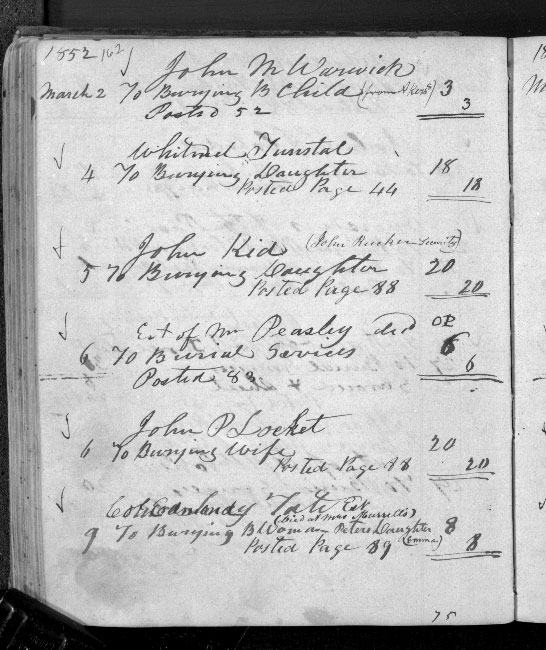 1852 162
John M Warwick
March 2 To Burying B Child (from A Rest) 3
Posted 52 3
Whitmel Tunstal
4 To Burying Daughter 18
Posted Page 44 18
John Kid (John Rucker Security)
5 To Burying Daughter 20
Posted Page 88 20
Est of Mr Peasley decd OP
6 To Burial Services 6
Posted 83 6
John P Locket
6 To Burying Wife 20
Posted Page 88 20
Tate Est
(Died at Mrs Murrells)
9 To Burying B Woman Peters Daughter 8
(Emma)
Posted Page 89 8
75
18
M